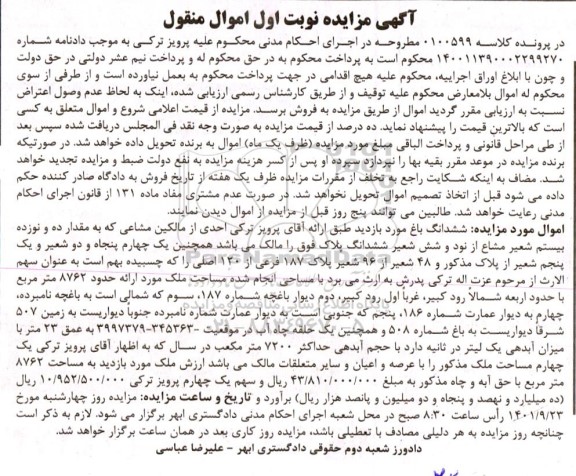 آگهی مزایده نوبت اول اموال منقول
در پرونده کلاسه ۰۱۰۰۵۹۹ مطروحه در اجرای احکام مدنی محکوم علیه پرویز ترکی به موجب دادنامه شماره
۱۴۰۰۱۱۳۹۰۰۰۲۲۹۹۲۷۰ محکوم است به پرداخت محکوم به در حق محکوم له و پرداخت نیم عشر دولتی در حق دولت
و چون با ابلاغ اوراق اجراییه، محکوم علیه هیچ اقدامی در جهت پرداخت محکوم به بعمل نیاورده است و از طرفی از سوی
محکوم له اموال بلامعارض محکوم علیه توقیف و از طریق کارشناس رسمی ارزیابی شده، اینک به لحاظ عدم وصول اعتراض
نسبت به ارزیابی مقرر گردید اموال از طریق مزایده به فروش برسد. مزایده از قیمت اعلامی شروع و اموال متعلق به کسی
است که بالاترین قیمت را پیشنهاد نماید. ده درصد از قیمت مزایده به صورت وجه نقد فی المجلس دریافت شده سپس بعد
از طی مراحل قانونی و پرداخت الباقی مبلغ مورد مزایده (ظرف یک ماه) اموال به برنده تحویل داده خواهد شد. در صورتیکه
برنده مزایده در موعد مقرر بقیه بها را نپردازد سپرده او پس از کسر هزینه مزایده به نفع دولت ضبط و مزایده تجدید خواهد
شد. مضاف به اینکه شکایت راجع به تخلف از مقررات مزایده ظرف یک هفته از تاریخ فروش به دادگاه صادر کننده حکم
داده می شود قبل از اتخاذ تصمیم اموال تحویل نخواهد شد. در صورت عدم مشتری مفاد ماده ۱۳۱ از قانون اجرای احکام
مدنی رعایت خواهد شد. طالبین می توانند پنج روز قبل از مزایده از اموال دیدن نمایند.
اموال مورد مزایده: ششدانگ باغ مورد بازدید طبق ارائه آقای پرویز ترکی احدی از مالکین مشاعی که به مقدار ده و نوزده
بیستم شعیر مشاع از نود و شش شعیر ششدانگ پلاک فوق را مالک می باشد همچنین یک چهارم پنجاه و دو شعیر و یک
پنجم شعیر از پلاک مذکور و ۴۸ شعیر از ۹۶ شعیر پلاک ۱۸۷ فرعی از ۱۳۰ اصلی را که چسبیده بهم است به عنوان سهم
الارث از مرحوم عزت اله ترکی پدرش به ارث می برد با مساحی انجام شده مساحت ملک مورد ارائه حدود ۸۷۶۲ متر مربع
با حدود اربعه شمالاً رود کبیر، غرباً اول رود کبیر، دوم دیوار باغچه شماره ۱۸۷، سوم که شمالی است به باغچه نامبرده،
چهارم به دیوار عمارت شماره ۱۸۶، پنجم که جنوبی است به دیوار عمارت شماره نامبرده جنوباً دیواریست به زمین ۵۰۷
شرقاً دیواریست به باغ شماره ۵۰۸ و همچنین یک حلقه چاه آب در موقعیت ۳۴۵۳۶۳-۳۹۹۷۳۷۹ به عمق ۲۳ متر با
میزان آبدهی یک لیتر در ثانیه دارد با حجم آبدهی حداکثر ۷۲۰۰ متر مکعب در سال که به اظهار آقای پرویز ترکی یک
چهارم مساحت ملک مذکور را با عرصه و اعیان و سایر متعلقات مالک می باشد ارزش ملک مورد بازدید به مساحت ۸۷۶۲
متر مربع با حق آبه و چاه مذکور به مبلغ ۴۳/۸۱۰/۰۰۰/۰۰۰ ریال و سهم یک چهارم پرویز ترکی ۱۰/۹۵۲/۵۰۰/۰۰۰ ریال
(ده میلیارد و نهصد و پنجاه و دو میلیون و پانصد هزار ریال) برآورد و تاریخ و ساعت مزایده: مزایده روز چهارشنبه مورخ
۱۴۰۱/۹/۲۳ رأس ساعت ۸:۳۰ صبح در محل شعبه اجرای احکام مدنی دادگستری ابهر برگزار می شود. لازم به ذکر است
چنانچه روز مزایده به هر دلیلی مصادف با تعطیلی باشد، مزایده روز کاری بعد در همان ساعت برگزار خواهد شد.
دادورز شعبه دوم حقوقی دادگستری ابهر - علیرضا عباسی